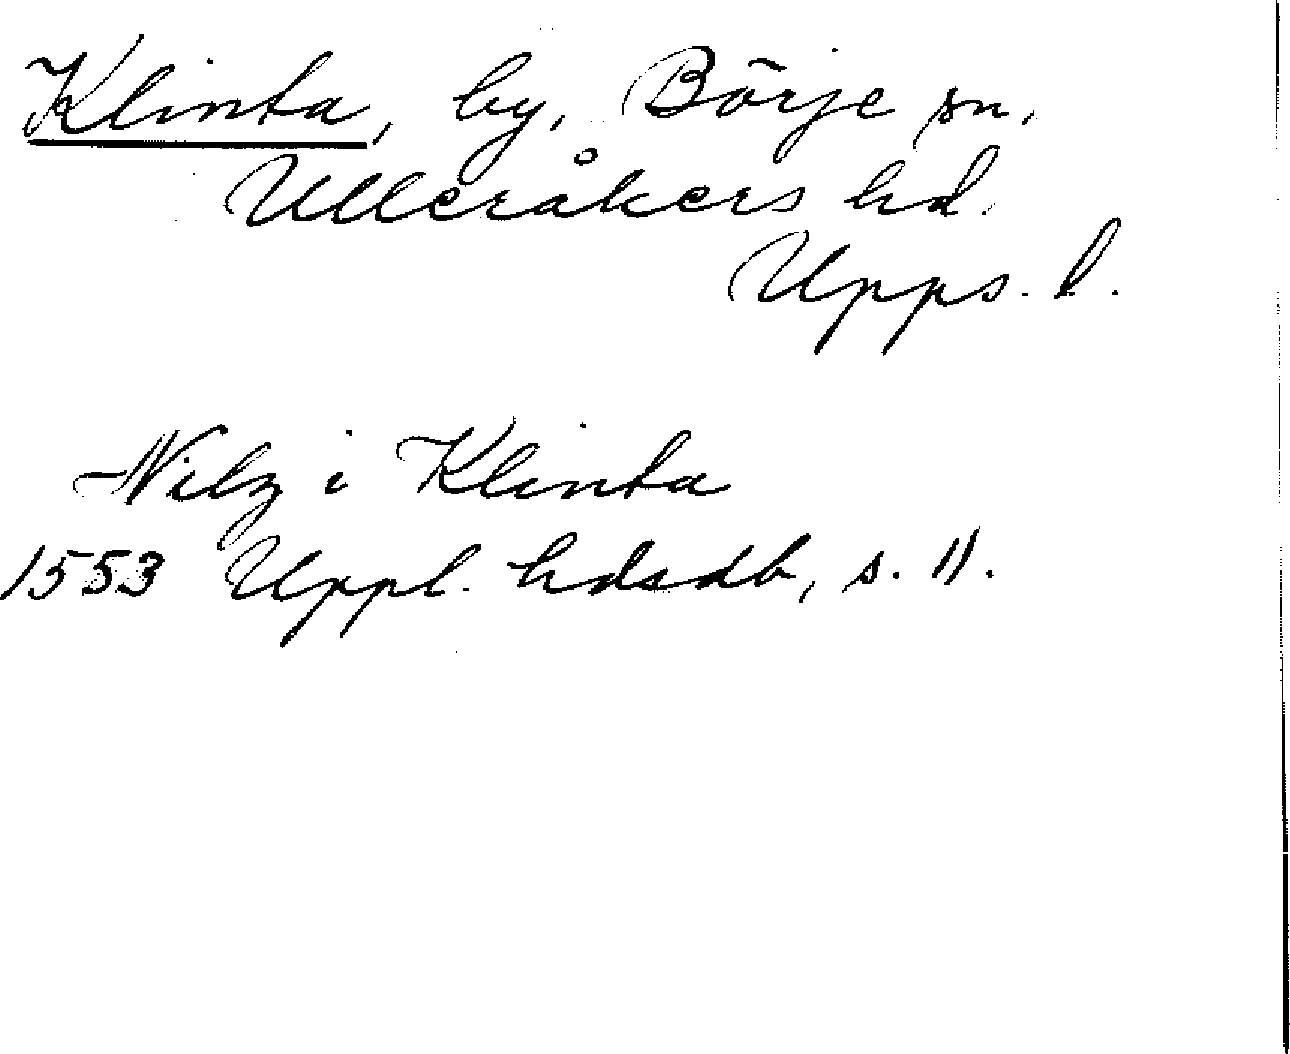 Klinta, by, Börje sn,
Ulleråkers hd.
Upps. l.
Nilz i Klinta
1553 Uppl. hdsdb, s. 11.